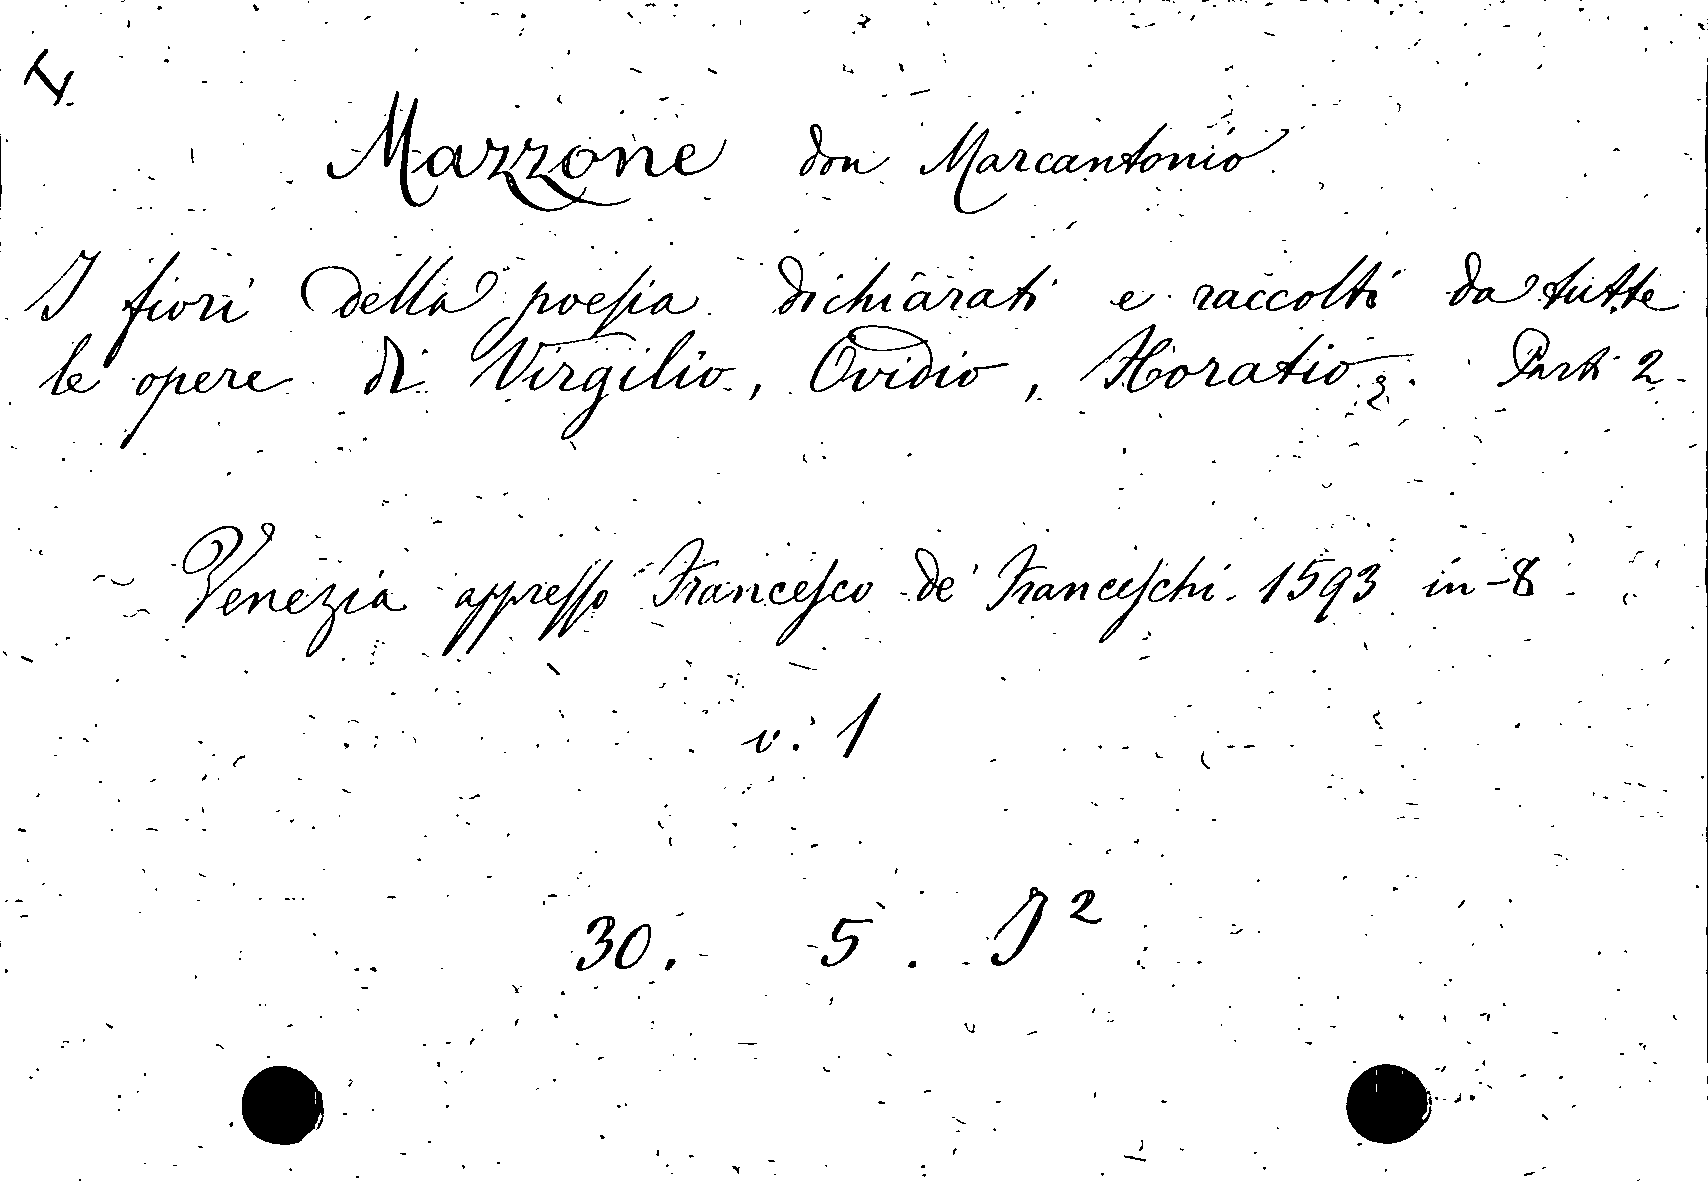 Mazzone don Marcantonio
I fiori della poesia dichiarati e raccolti da tutte
le opere di Virgilio, Ovidio, Horatio. Parti 2
Venezia appresso Francesco de' Franceschi. 1593 in-8
v. 1
30. 5. I²